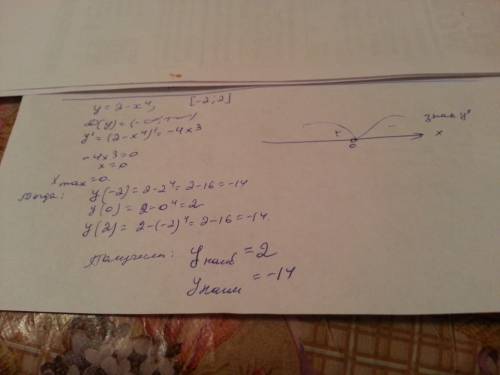 y = 2 - x⁴, [-2; 2]
D(y) = (-∞; +∞)
y' = (2 - x⁴)' = -4x³
-4x³ = 0
x = 0
x max = 0.
Тогда: y(-2) = 2 - 2⁴ = 2 - 16 = -14
y(0) = 2 - 0⁴ = 2
y(2) = 2 - (-2)⁴ = 2 - 16 = -14.
Получили: y наиб = 2
y наим = -14
+ - знак y'
0 x